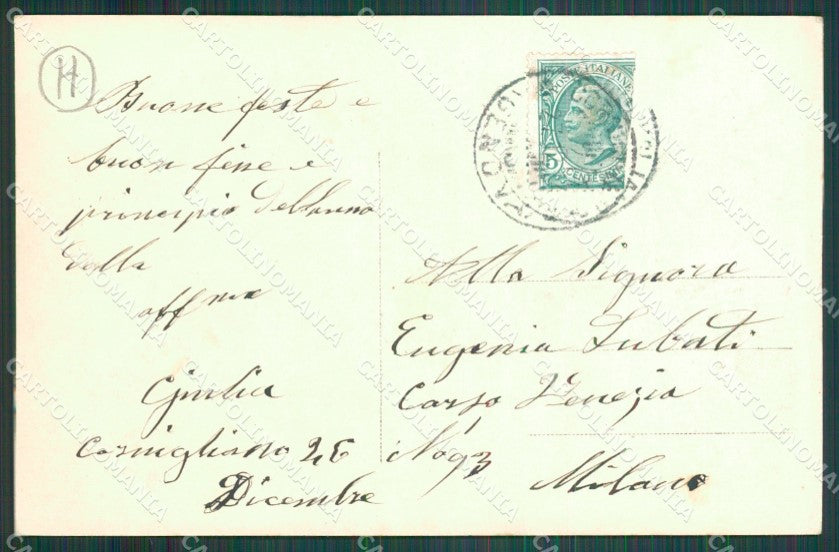 H
Buone feste e
buon fine e
principio dell'anno
dalla
affma
Giulia
Cornigliano 26
Dicembre
POSTE ITALIANE
5
CENTESIMI
Alla Signora
Eugenia Lubati
Corso Venezia
No 93
Milano
CARTOLINOMANIA